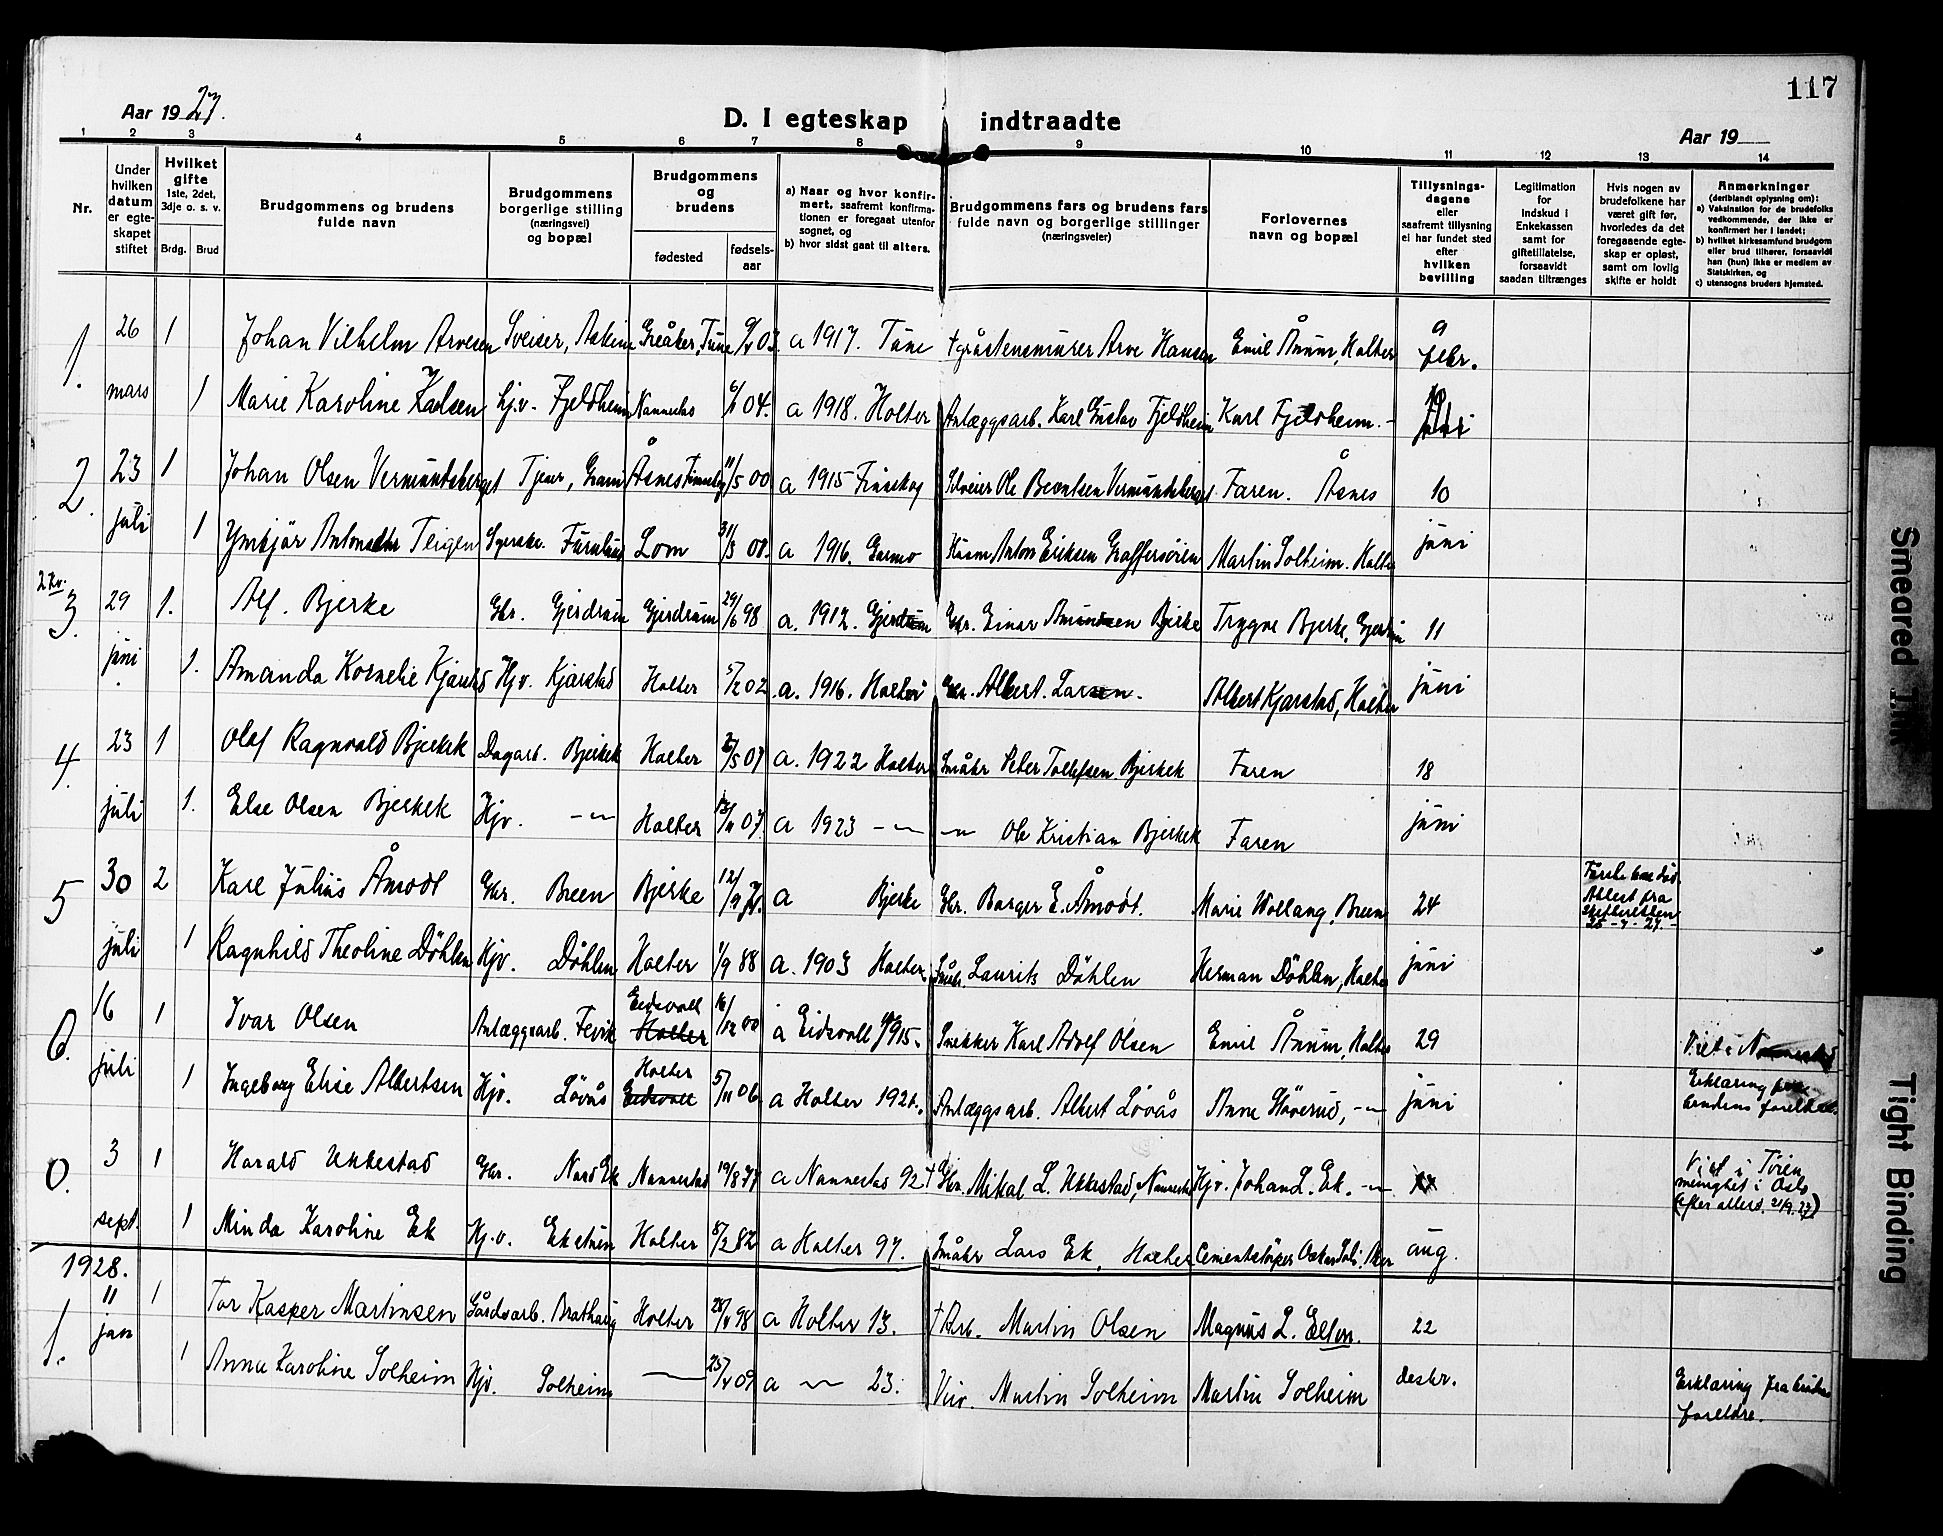 117
Aar 1927.
D. I egteskap indtraadte
Aar 19
1 2 3 4 5 6 7 8 9 10 11 12 13 14
Nr.
Under hvilken datum er egteskapet stiftet
Hvilket gifte 1ste, 2det, 3dje o. s. v.
Brdg. Brud
Brudgommens og brudens fulde navn
Brudgommens borgerlige stilling (næringsvei) og bopæl
Brudgommens og brudens
fødested
fødselsaar
a) Naar og hvor konfirmert, saafremt konfirmationen er foregaat utenfor sognet, og
b) hvor sidst gaat til alters.
Brudgommens fars og brudens fars fulde navn og borgerlige stillinger (næringsveier)
Forlovernes navn og bopæl
Tillysningsdagene eller saafremt tillysning ei har fundet sted efter hvilken bevilling
Legitimation for indskud i Enkekassen samt for giftetillatelse, forsaavidt saadan tiltrænges
Hvis nogen av brudefolkene har været gift før, hvorledes da det foregaaende egteskap er opløst, samt om lovlig skifte er holdt
Anmerkninger (deriblandt oplysning om):
a) Vaksination for de brudefolks vedkommende, der ikke er konfirmert her i landet;
b) hvilket kirkesamfund brudgom eller brud tilhører, forsaavidt han (hun) ikke er medlem av Statskirken, og
c) utensogns bruders hjemsted.
1. 26 1 Johan Vilhelm Arvesen Sveiser, Askim Greåker, Tune 03. a 1917. Tune † gråstensmurer Arve Hansen Emil Ånum, Holter 9 febr.
mars 1 Marie Karoline Karlsen hj.v. Fjeldheim Nannestad 04. a 1918. Holter Anlæggsarb. Karl Gustav Fjeldheim Karl Fjeldheim. -
2. 23 1 Johan Olsen Vermundsberget Tjener, Åsnes 11/5 00 a 1915 Finskog Ole Berntsen Vermundsberget Faren. Åsnes 10
juli 1 Teigen Furulund Lom 31/3 00. a 1916. Garmo Anton Eriksen Martin Solheim. Holter juni
2 kv.
3. 29 1. Alf. Bjerke Gbr. Gjerdrum Gjerdrum 29/6 98 a. 1912. Gjerdrum Gbr. Einar Amundsen Bjerke Trygve Bjerke, Gjerdrum 11
juni 1. Amanda Kornelie Kjærstad Hjv. Kjærstad Holter 5/12 02 a. 1916. Holter Gbr. Albert. Larsen. Albert Kjærstad, Holter juni
4. 23 1 Olaf Ragnvald Bjerkek Dagarb. Bjerkek Holter /5 07 a. 1922 Holter Småbr Peter Tollefsen Bjerkek Faren 18
juli 1. Else Olsen Bjerkek Hjv. -"- Holter 07. a 1923 -"- -"- Ole Kristian Bjerkek Faren juni
5 30 2 Karl Julius Åmodt Gbr. Breen Bjerke 12/9 a Bjerke Gbr. Borger E. Åmodt. Marie Wollang, Breen 24 Attest fra skifteretten 25-7-27.-
juli 1 Ragnhild Theoline Döhlen Hjv. Döhlen Holter 1/9 88 a. 1903 Holter Småbr. Laurits Döhlen Herman Döhlen, Holter juni
6. 16 1 Ivar Olsen Anlæggsarb. Eidsvoll Holter 16/12 00 a Eidsvoll 1915. Snekker Karl Adolf Olsen Emil Ånum, Holter 29 Viet i Nannestad
juli 1 Ingeborg Elise Albertsen Hjv. Lövås Holter Eidsvoll 5/11 06. a Holter 1921. Anlæggsarb. Albert Lövås Anne -"- juni Erklæring fra brudens foreldre.
0. 3 1 Harald Ukkestad Gbr. Nord Ek Nannestad 19/8 77 a Nannestad 92 † Gbr. Mikal L. Ukkestad, Nannestad Hjv. Johan L. Ek. -"- Viet i Tøien menighet i Oslo (efter attest. 21/9. 27)
sept. 1 Minda Karoline Ek Hj.v. Ekstuen Holter 8/2 82 a Holter 97. Småbr Lars Ek, Holter Cementstøper Oskar Aker aug.
1928.
1. 11 1 Tor Kasper Martinsen Gårdsarb. Brathaug Holter 98 a Holter 13. † Arb. Martin Olsen Magnus L. Elton. 22
jan 1 Anna Karoline Solheim Hjv. Solheim — 09 a -"- 23. Martin Solheim Martin Solheim desbr. Erklæring fra brudens foreldre.
Smeared Ink
Tight Binding